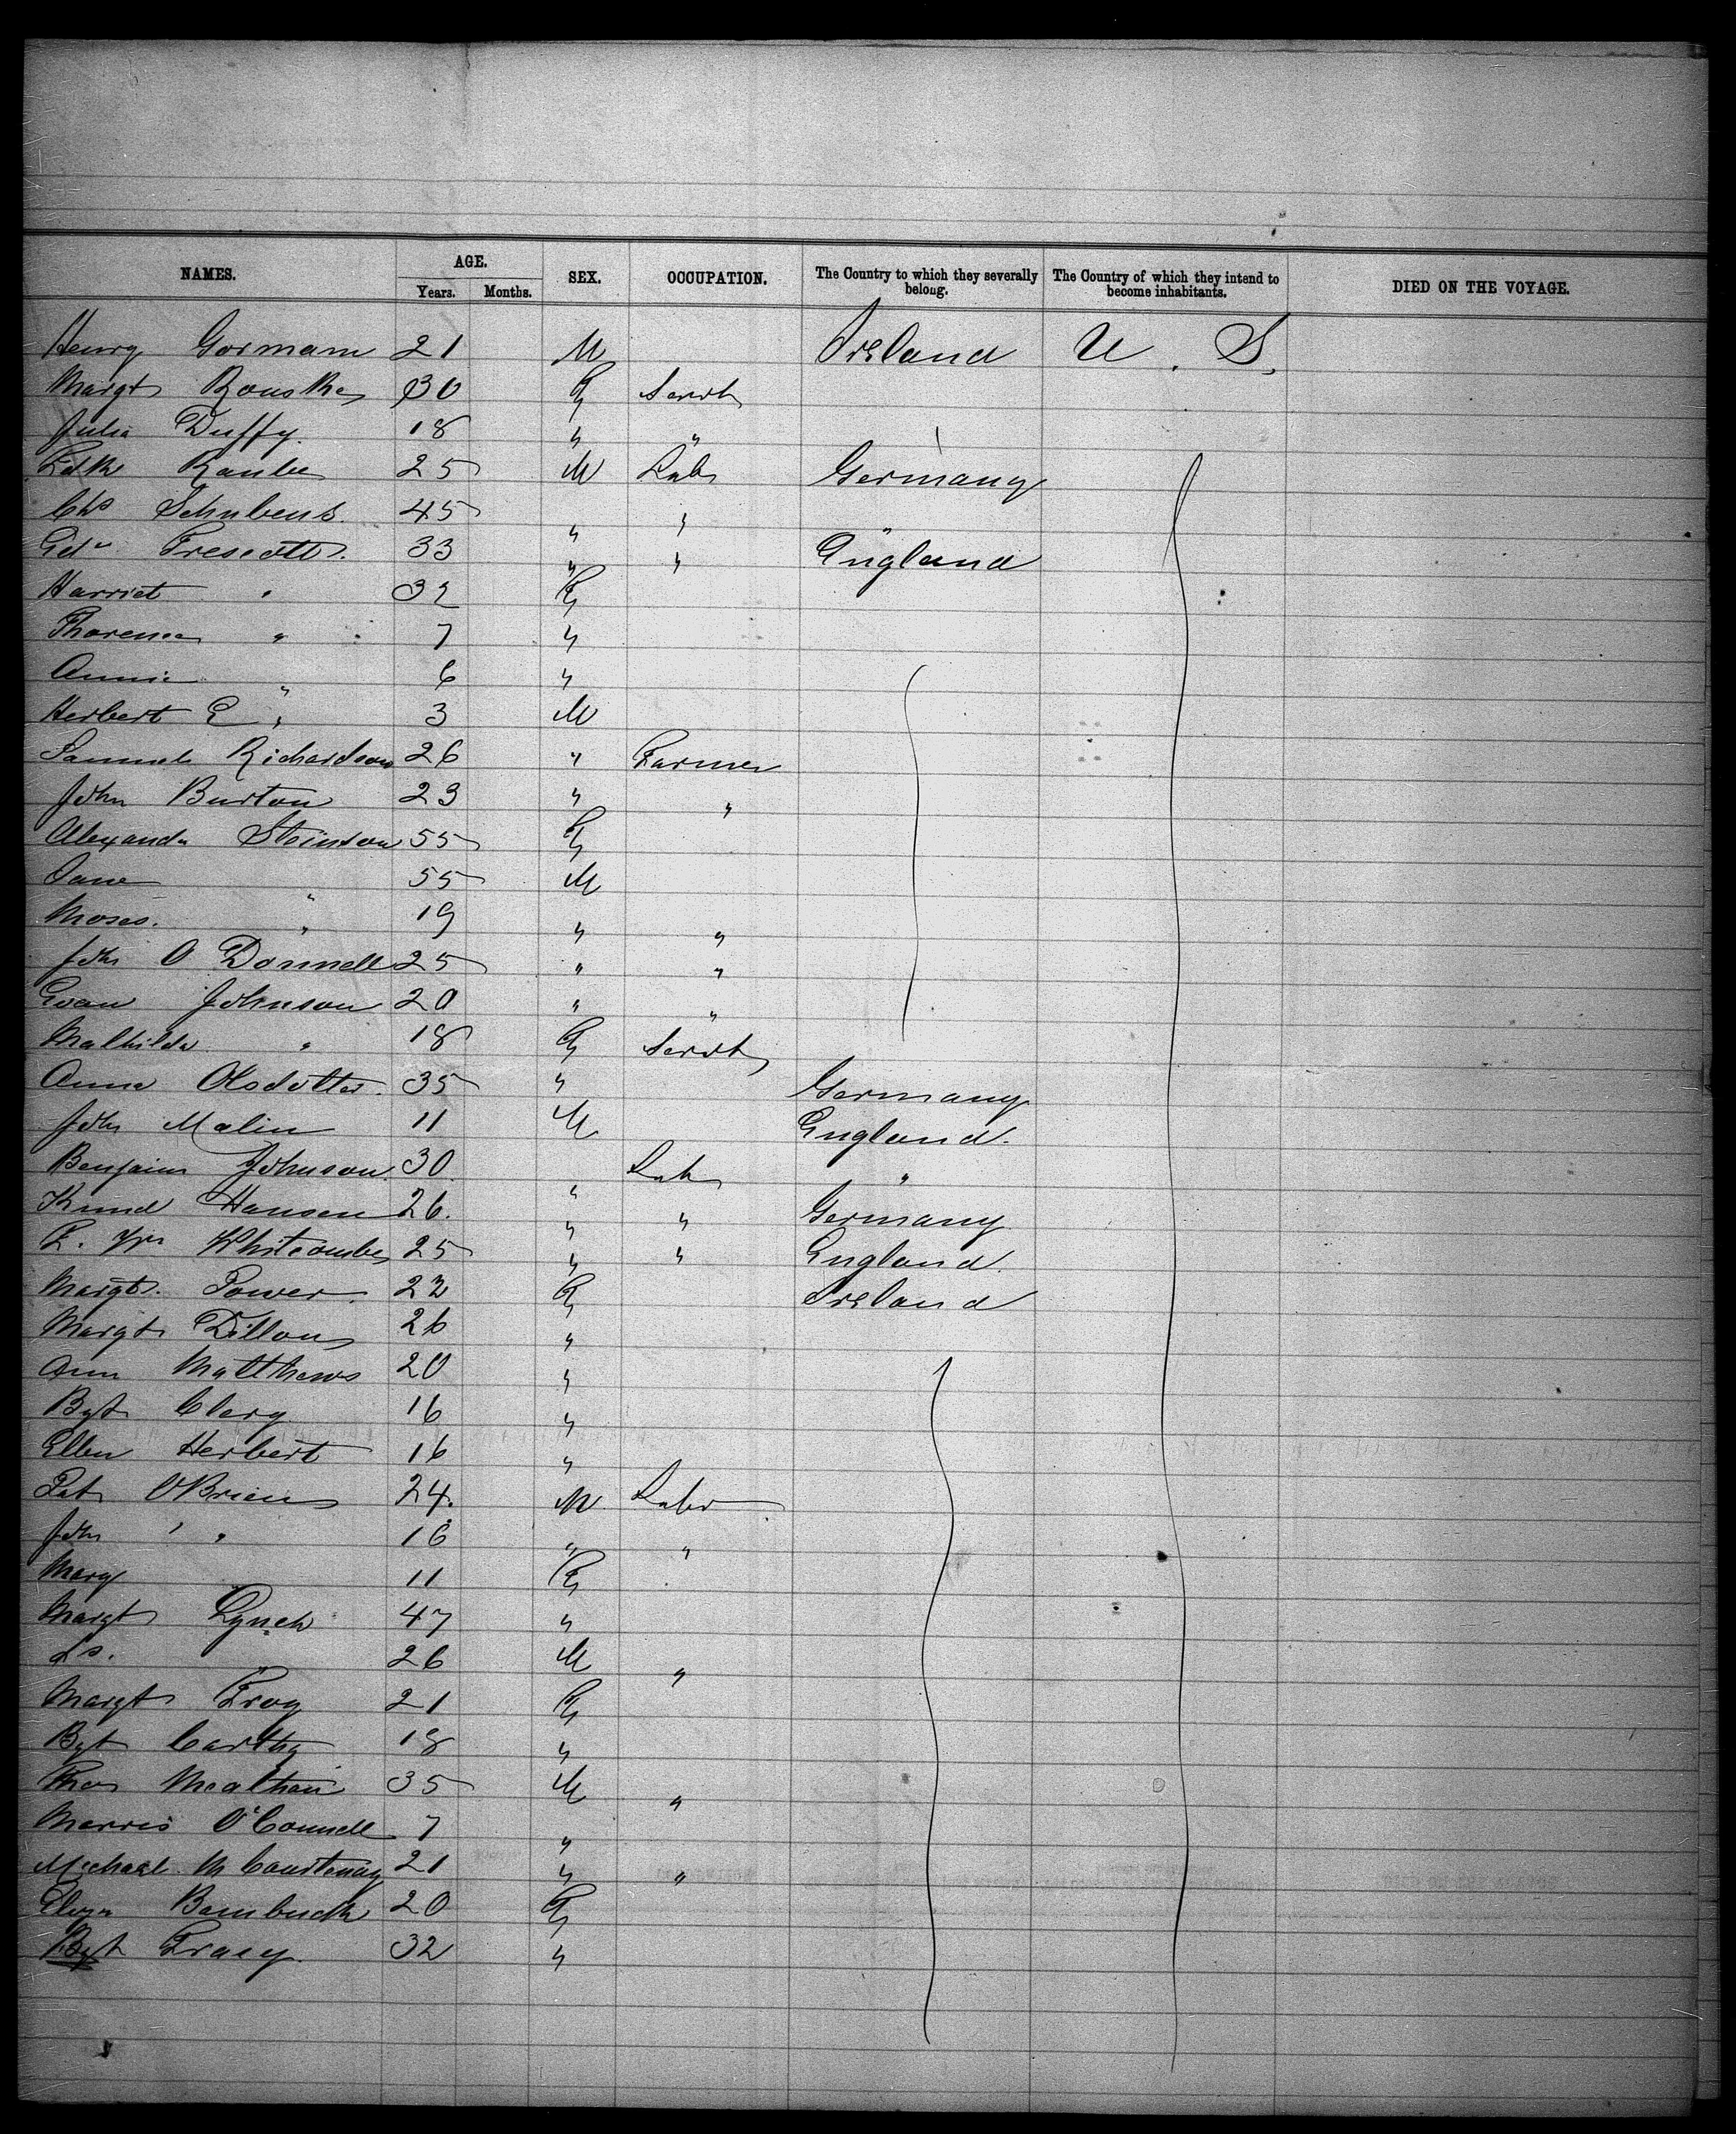 NAMES. AGE. SEX. OCCUPATION. The Country to which they severally belong. The Country of which they intend to become inhabitants. DIED ON THE VOYAGE.
Years. Months.
Henry Gorman 21 M Ireland U. S.
Margt 30 F Servt
Julia Duffy. 18 " "
Fdk 25 M Lab Germany
Chs 45 " " "
Edw 33 " " England
Harriet " 32 F
" 7 "
Annie " 6 "
Herbert E " 3 M
Samuel Richardson 26 " Farmer
John Burton 23 " "
Alexander Stinson 55 F
Jane " 55 M
Moses. " 19 " "
John O Donnell 25 " "
Evan Johnson 20 " "
Mathilda " 18 F Servt
Anna Olsdotter. 35 " Germany
John Malin 11 M England.
Benjaim Johnson 30 " Lab "
Knud Hansen 26. " " Germany
F. Wm Whitcombe 25 " " England.
Margt. Power 22 F Ireland
Margt Dillon 26 "
Ann Matthews 20 "
Bgt Clery 16 "
Ellen Herbert 16 "
Pat O'Brien 24. M Labr
John " " 16 " "
Mary 11 F
Margt Lynch 47 "
" 26 M "
Margt 21 F
Bgt Carthy 18 "
Thos 35 M "
Morris O'Connell 7 "
Michael Mc Courtenay 21 " "
Eliza 20 F
Bgt Tracy. 32 "